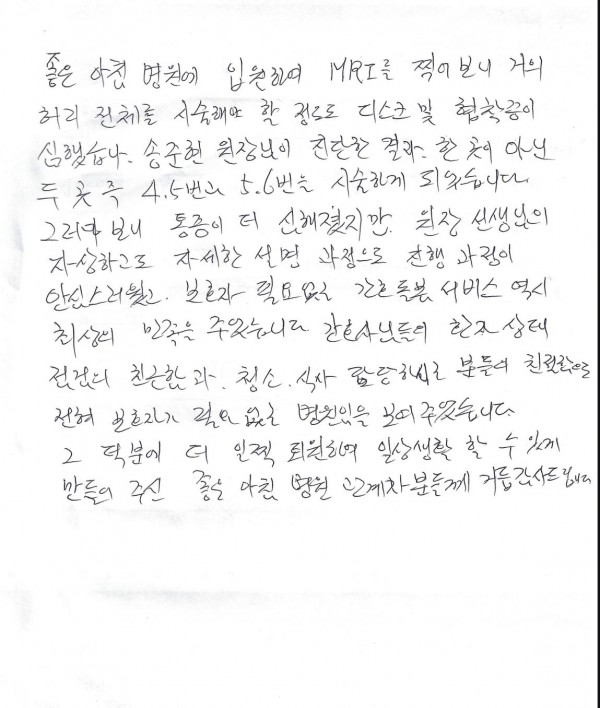 좋은 아침 병원에 입원하여 MRI를 찍어 보니 거의
허리 전체를 시술해야 할 정도로 디스크 및 협착증이
심했습니다. 송준현 원장님이 진단한 결과. 한 곳이 아닌
두 곳 즉 4.5번과 5.6번을 시술하게 되었습니다
그러다 보니 통증이 더 심해졌지만. 원장 선생님의
자상하고도 자세한 설명 과정으로 진행 과정이
안심스러웠고. 보호자 필요없는 간호돌봄 서비스 역시
최상의 만족을 주었습니다 간호사님들의 환자 상태
점검의 친근함과. 청소. 식사 담당하시는 분들의 친절함으로
전혀 보호자가 필요 없는 병원임을 보여 주었습니다.
그 덕분에 더 일찍 퇴원하여 일상생활 할 수 있게
만들어 주신 좋은 아침 병원 관계자분들께 거듭감사드립니다